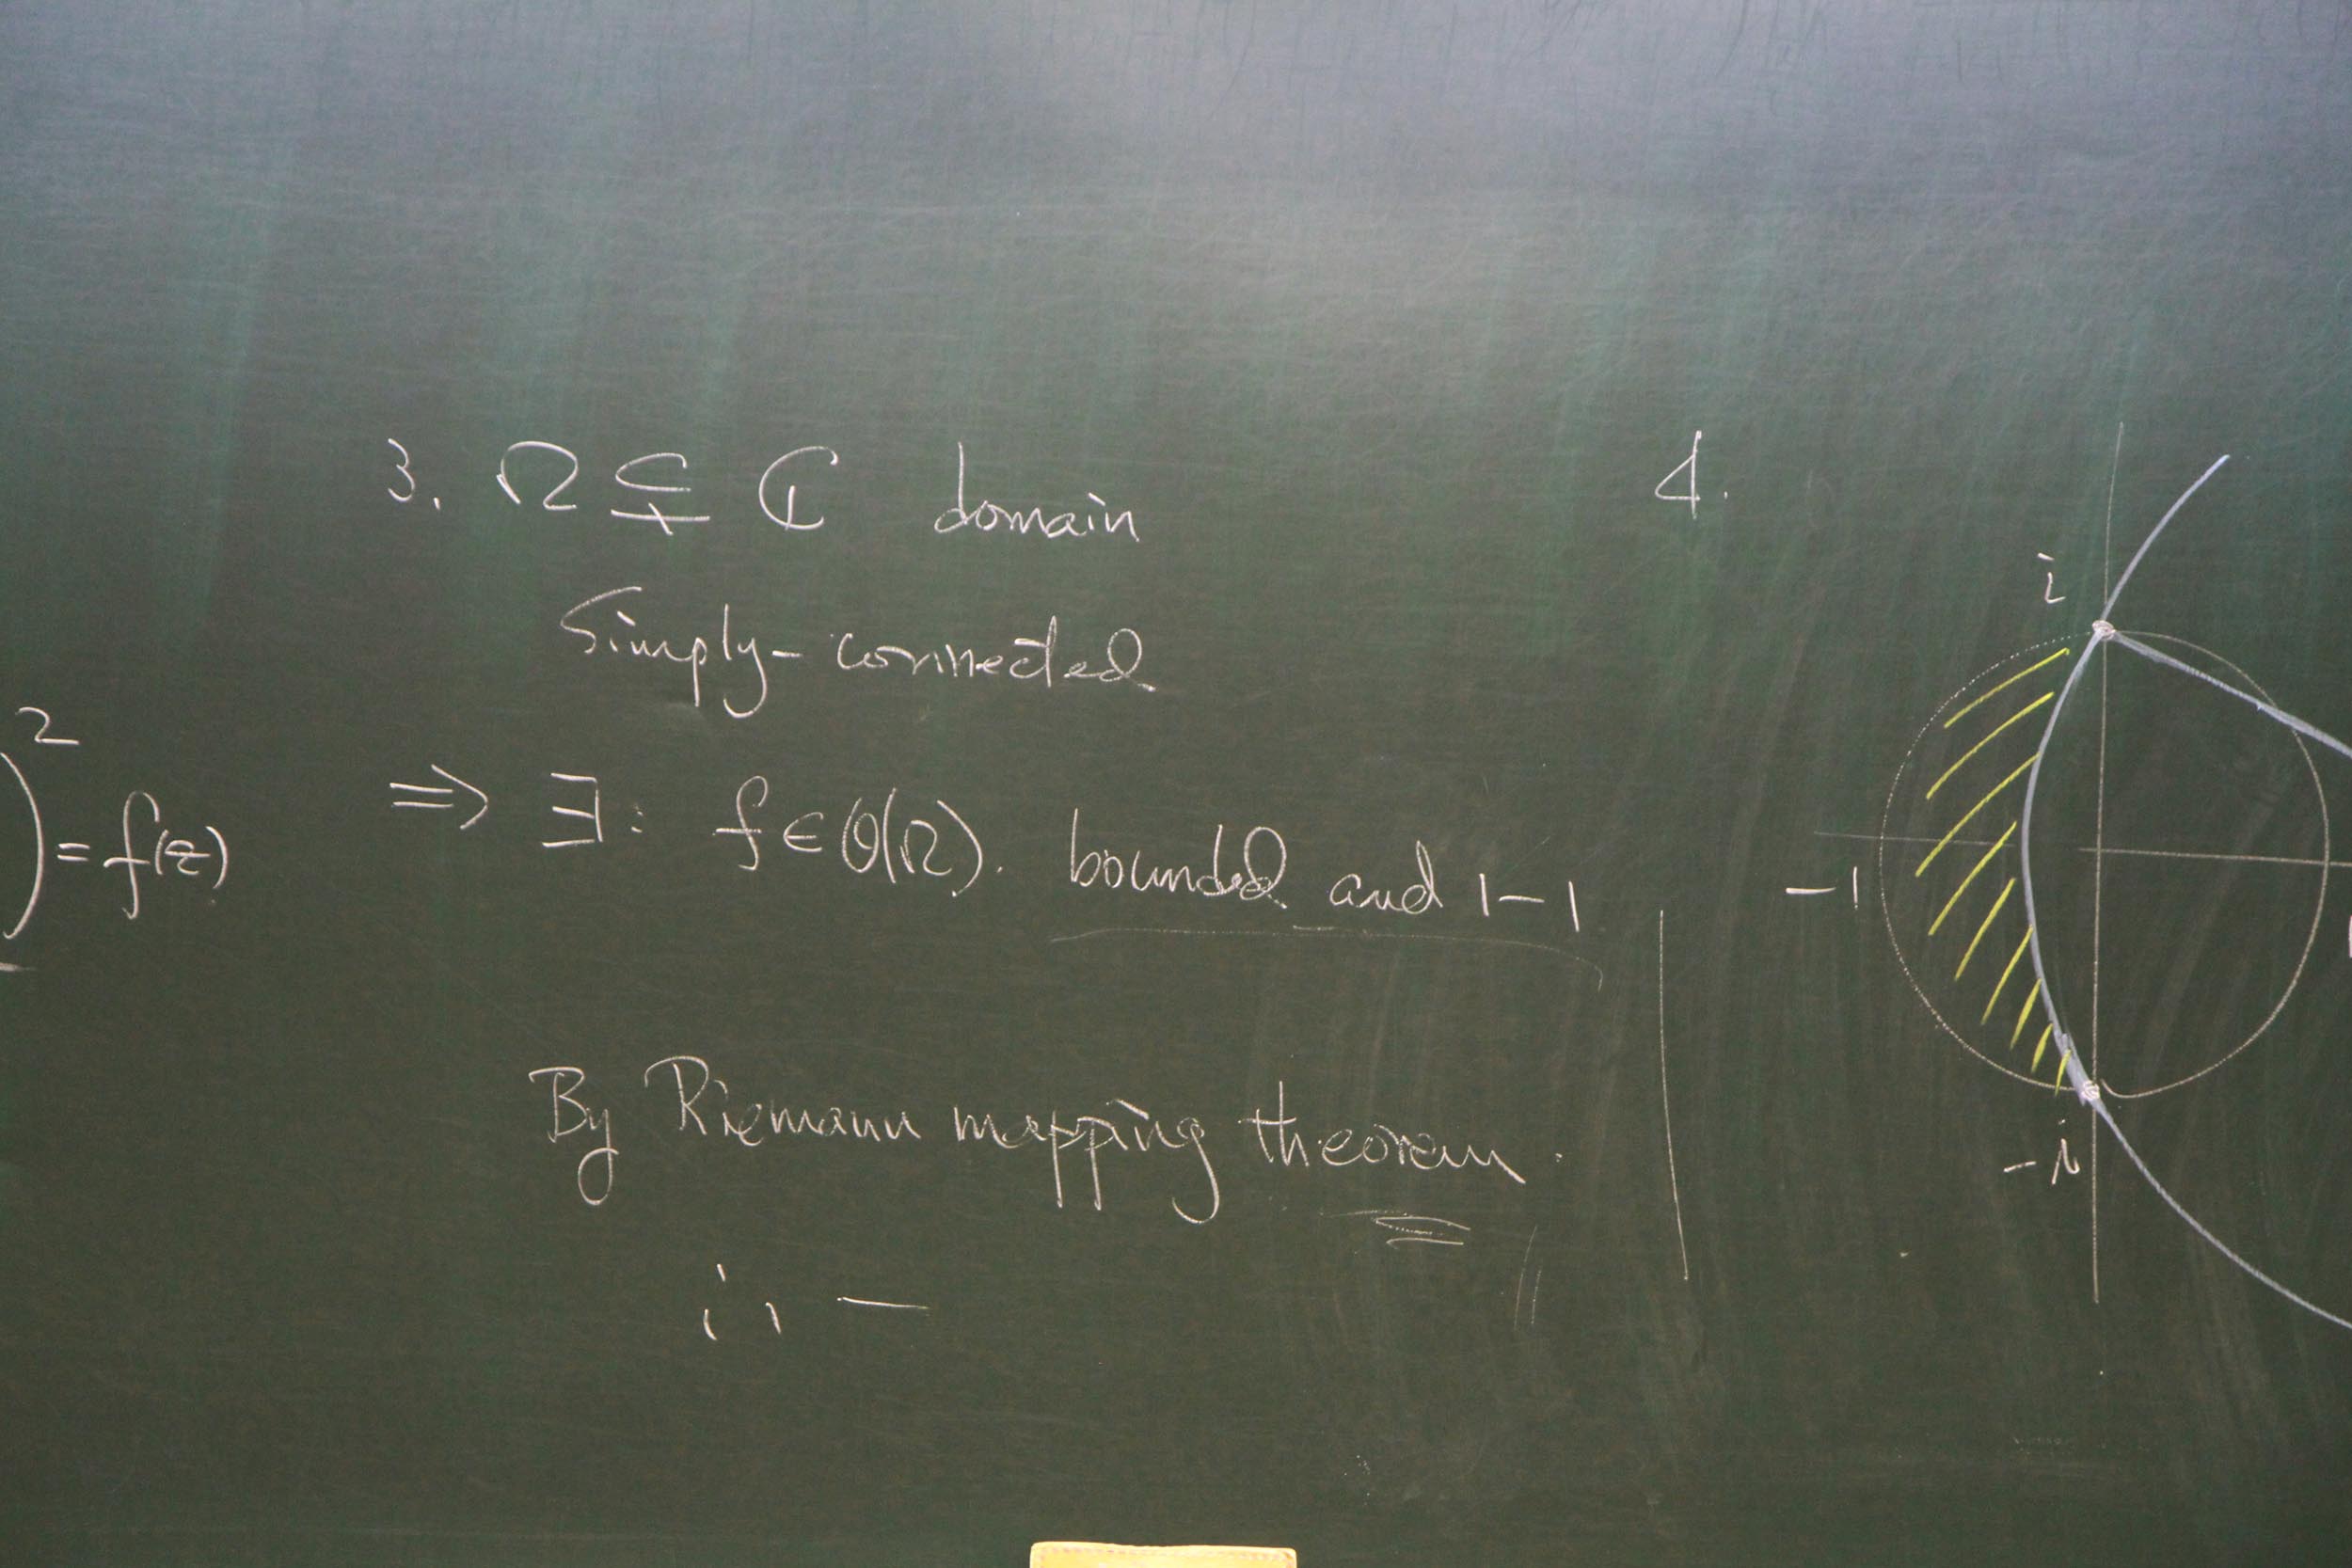 3. Ω ⊊ ℂ domain
Simply-connected
⇒ ∃: f ∈ O(Ω). bounded and 1-1
By Riemann mapping theorem.
)² = f(z)
4.
i
-1
-i